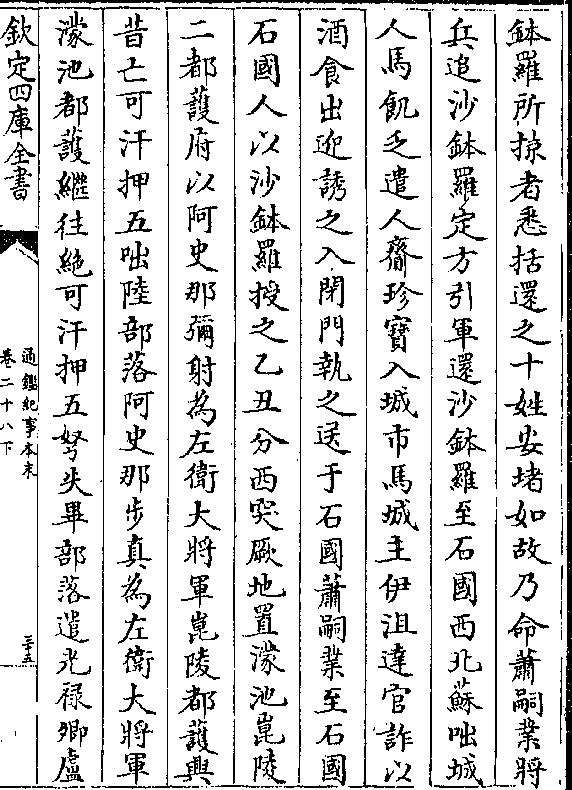 鉢羅所掠者悉括還之十姓安堵如故乃命蕭嗣業將
兵追沙鉢羅定方引軍還沙鉢羅至石國西北蘇咄城
人馬飢乏遣人齎珍寶入城市馬城主伊沮達官詐以
酒食出迎誘之入閉門執之送于石國蕭嗣業至石國
石國人以沙鉢羅授之乙丑分西突厥地置濛池崑陵
二都護府以阿史那彌射為左衛大將軍崑陵都護興
昔亡可汗押五咄陸部落阿史那步真為左衛大將軍
濛池都護繼往絶可汗押五弩失畢部落遣光禄卿盧
欽定四庫全書
通鑑紀事本末
卷二十八下
三十五